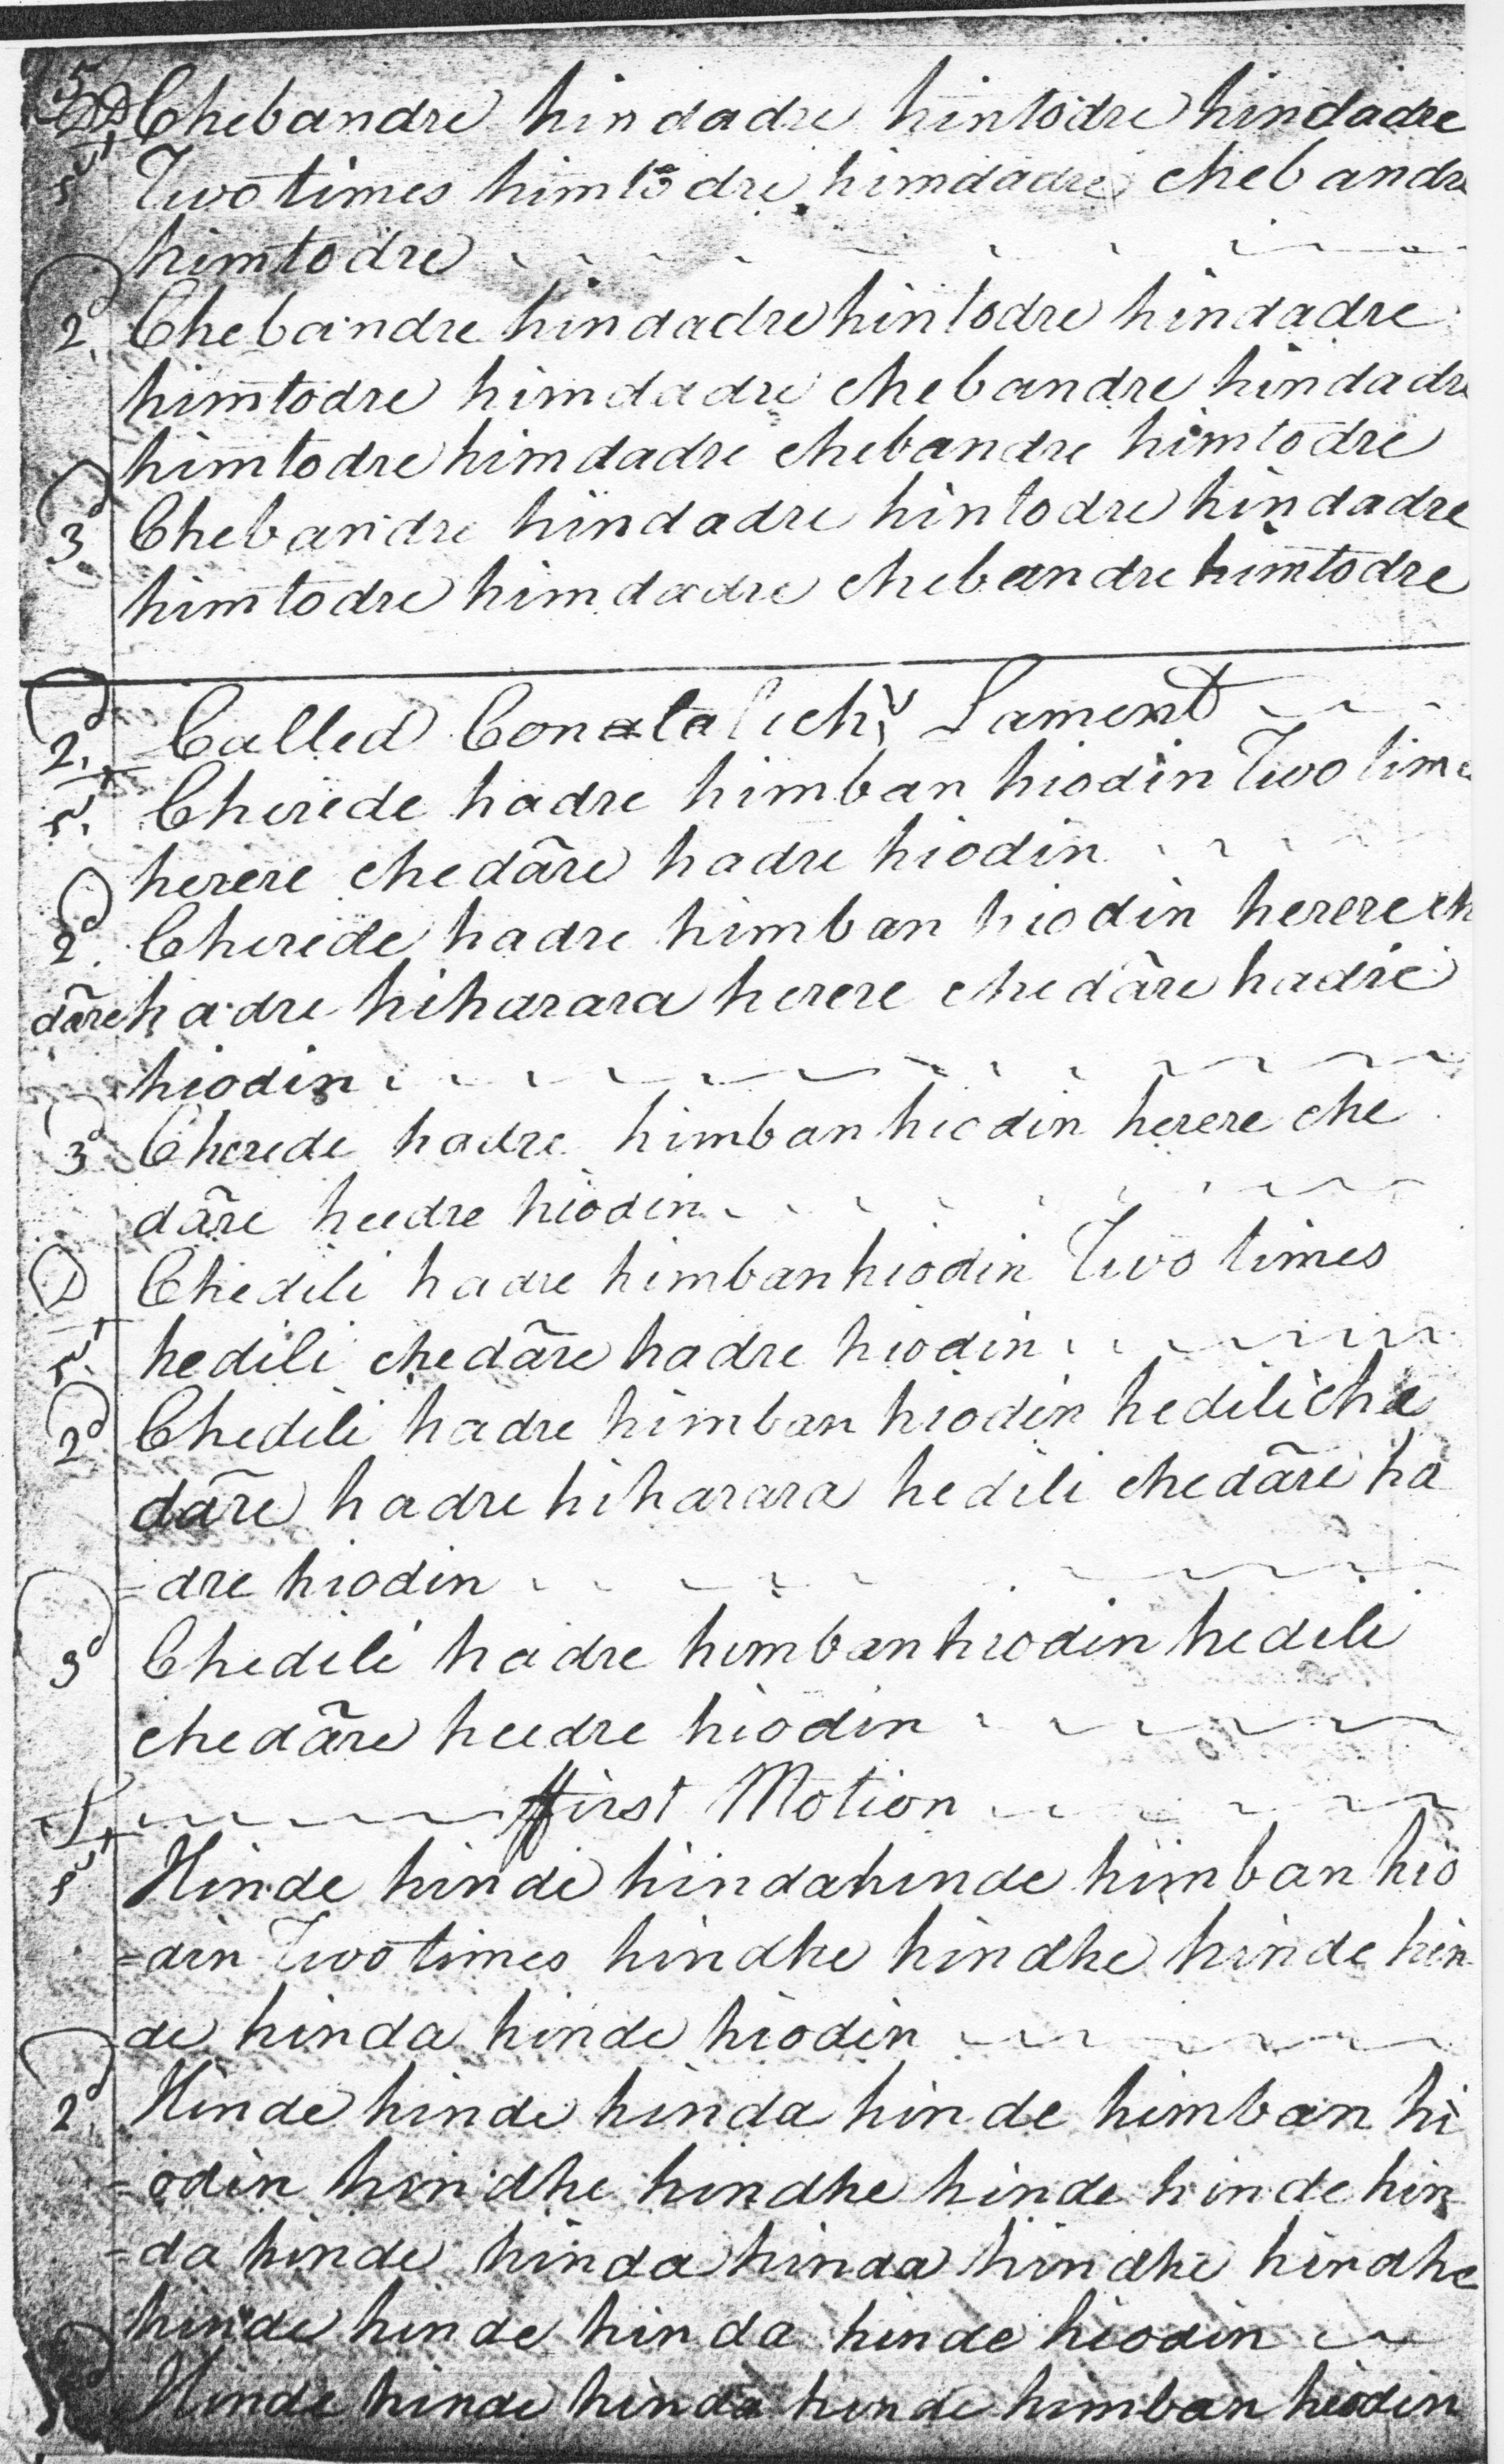 5 D Chebandre hindadre hintodre hindadre
1st Two times himtodre himdadre chebandre
himtodre
2d Chebandre hindadre hintodre hindadre
himtodre himdadre chebandre hindadre
himtodre himdadre chebandre himtodre
3d Chebandre hindadre hintodre hindadre
himtodre himdadre chebandre himtodre
2d Called Contalich's Lament
1st Cherede hadre himban hiodin Two times
herere chedãre hadre hiodin
2d Cherede hadre himban hiodin herere che
dãre hadre hiharara herere chedãre hadre
hiodin
3d Cherede hadre himban hiodin herere che
dãre heedre hiodin
D Chedili hadre himbanhiodin Two times
1st hedili chedãre hadre hiodin
2d Chedili hadre himban hiodin hedili che
dãre hadre hiharara hedili chedãre ha
=dre hiodin
3d Chedili hadre himbanhiodin hedili
chedãre heedre hiodin
S ffirst Motion
1st Hinde hinde hindahinde himban hio
=din Two times hindhe hindhe hinde hin
de hinda hinde hiodin
2d Hinde hinde hinda hinde himban hi
=odin hindhe hindhe hinde hinde hin
=da hinde hinda hinda hindhe hindhe
hinde hinde hinda hinde hiodin
Hinde hinde hinda hinde himban hiodin